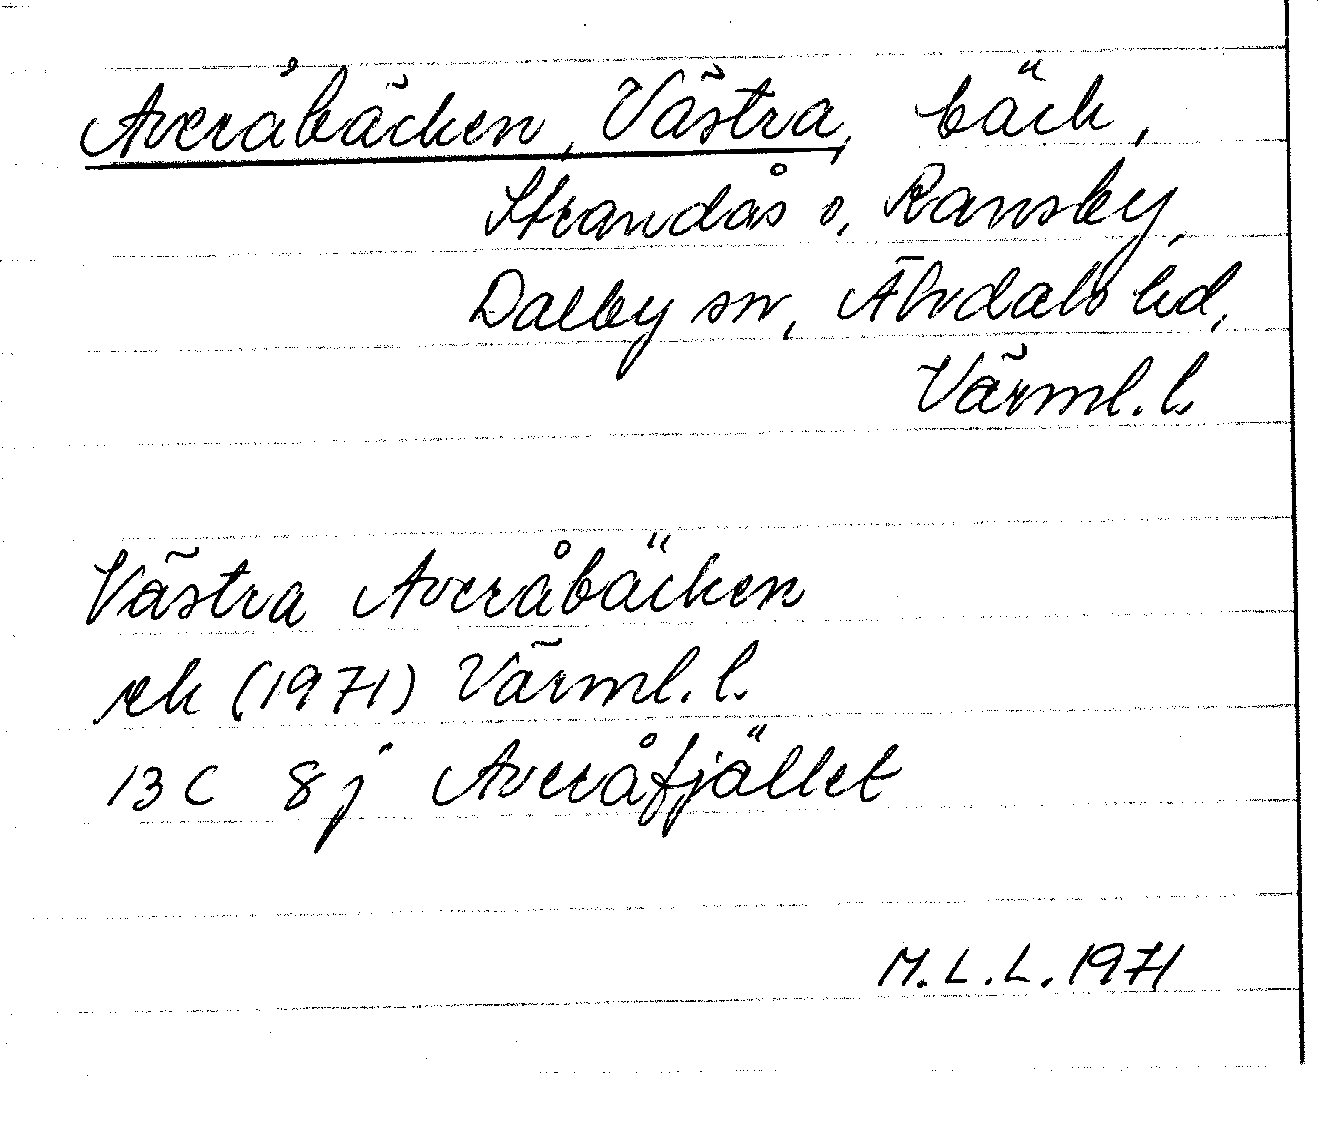 Averåbäcken, Västra, bäck,
Strandås o. Ransby,
Dalby sn, Älvdals hd,
Värml. l.
Västra Averåbäcken
rek (1971) Värml. l.
13 C 8 j Averåfjället
M. L. L. 1971